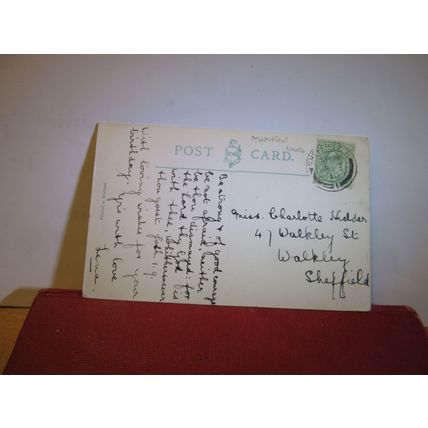 POST CARD.
Be strong & of good courage
be not afraid, neither
be thou dismayed: for
the Lord thy God is
with thee, whithersoever
thou goest. Josh. 1.9.
With loving wishes for your
birthday, yrs with love
Lena.
Miss. Charlotte
47 Walkley St
Walkley
Sheffield